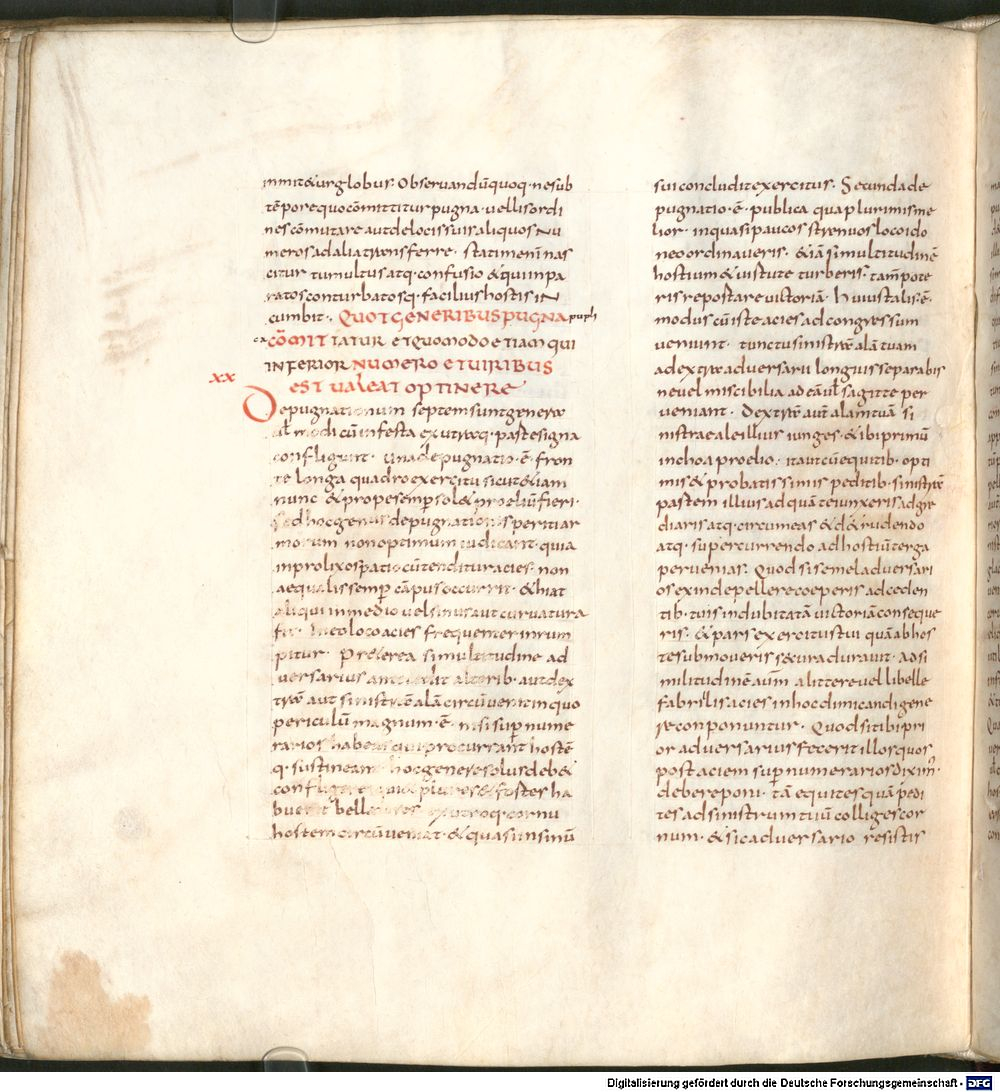 inmitetur globus. Observandū quoq· ne sub
tēpore quo cōmittitur pugna· vellis ordi
nes cōmutare aut de locis suis aliquos nu
meros ad alia transferre· statim enī nas
citur tumultus atq· confusio & quiinpa
ratos conturbatosq· facilius hostis in
cumbit·. QUOT GENERIBUS PUGNA pupli
ca CŌMITTATUR ET QUOMODO ETIAM QUI
INFERIOR NUMERO ET VIRIBUS
xx
EST VALEAT OPTINERE
Depugnationum septem sunt genera
ul modi cū infesta ex utraq· parte signa
confligunt· una depugnatio·ē· fron
te longa quadro exercitu sicut &iam
nunc & prope semp sol& proeliū fieri·
sed hoc genus depugnationis peritiar
morum non optimum iudicant· quia
in prolixo spatio cū tenditur acies· non
aequalis semp cāpus occurrit· & hiat
aliqui in medio vel sinus aut curvatura
fit· in eo loco acies frequenter inrum
pitur· Pr&erea si multitudine ad
versarius antecedit a laterib· aut dex
tram aut sinistrā alā circūvenit in quo
periculū magnum·ē· nisi supnume
rarios habeas qui procurrant hostē
q· sustineant hoc genere solus deb&
confligere qui plures & fortes ha
buerit bellatores ex utroq· cornu
hostem circūveniat· & quasi in sinū
sui concludit exercitus· Secunda de
pugnatio·ē· publica qua plurimis me
lior· in qua si paucos strenuos loco ido
neo ordinaveris· &iā si multitudinē
hostium & virtute turberis· tam pote
ris repostare victoriā· huius talis·ē·
modus cū iste acies ad congressum
veniunt· tunc tu sinistrā alā tuam
a dextra adversarii longius separabis
ne vel miscibilia ad eā ul sagitte per
veniant· Dextrā aut alam tuā si
nistrae ale illius iunges· & ibi primū
inchoa proelio· ita ut cū equitib· opti
mis & probatissimis peditib· sinistrā
partem illius ad quā te iunxeris adgre
diaris atq· circumeas & d&rudendo
atq· supercurrendo ad hostiū terga
pervenias· Quod si semel adversari
os exinde pellere coeperis ad ceden
tib· tuis indubitatā victoriā conseque
ris· & pars exercitus tui quā ab hos
te submoveris secura duravit· Ad si
militudinē autm a littere vel libelle
fabrilis acies in hoc dimicandi gene
re conponuntur· Quod si tibi pri
or adversarius fecerit illos quos
post aciem sup numerarios diximꝰ·
debere poni· tā equites quā pedi
tes ad sinistrum tuū colliges cor
num· & sic adversario resistis
Digitalisierung gefördert durch die Deutsche Forschungsgemeinschaft - DFG